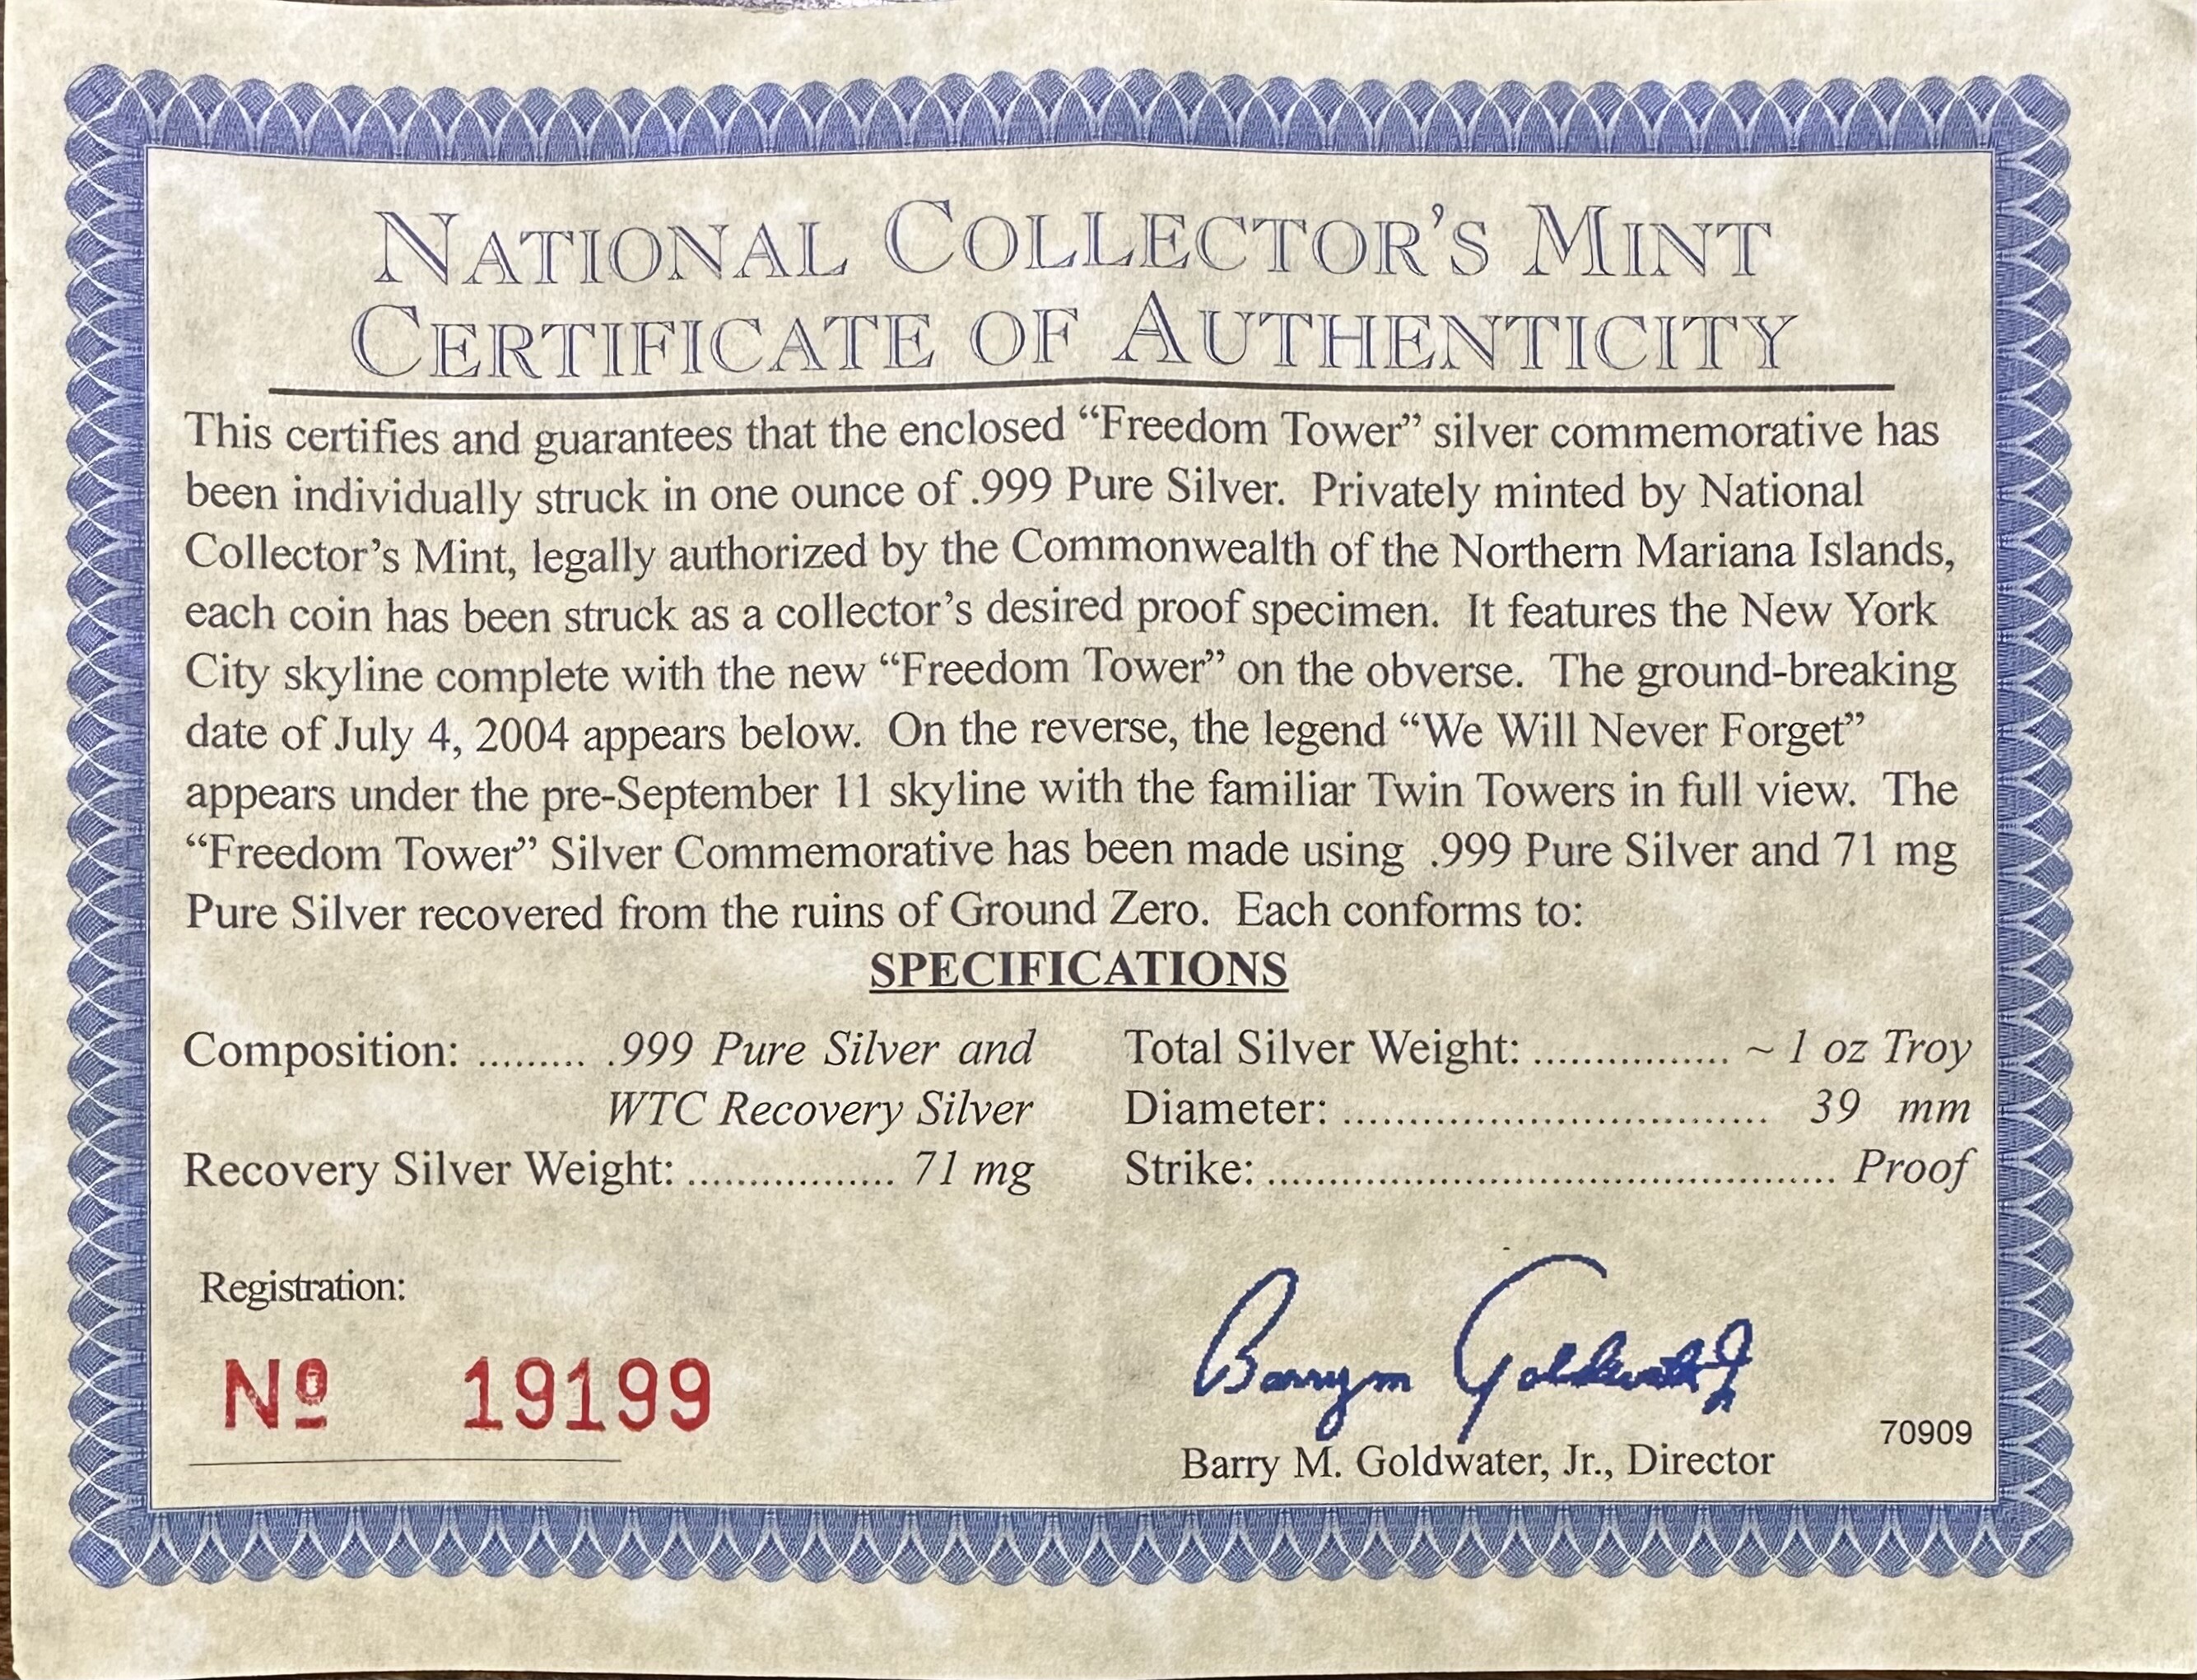 NATIONAL COLLECTOR'S MINT
CERTIFICATE OF AUTHENTICITY
This certifies and guarantees that the enclosed “Freedom Tower” silver commemorative has
been individually struck in one ounce of .999 Pure Silver. Privately minted by National
Collector’s Mint, legally authorized by the Commonwealth of the Northern Mariana Islands,
each coin has been struck as a collector’s desired proof specimen. It features the New York
City skyline complete with the new “Freedom Tower” on the obverse. The ground-breaking
date of July 4, 2004 appears below. On the reverse, the legend “We Will Never Forget”
appears under the pre-September 11 skyline with the familiar Twin Towers in full view. The
“Freedom Tower” Silver Commemorative has been made using .999 Pure Silver and 71 mg
Pure Silver recovered from the ruins of Ground Zero. Each conforms to:
SPECIFICATIONS
Composition: ......... .999 Pure Silver and
WTC Recovery Silver
Recovery Silver Weight: ................. 71 mg
Total Silver Weight: ................ ~ 1 oz Troy
Diameter: .................................. 39 mm
Strike: .............................................. Proof
Registration:
Nº 19199
Barry M Goldwater Jr
Barry M. Goldwater, Jr., Director
70909